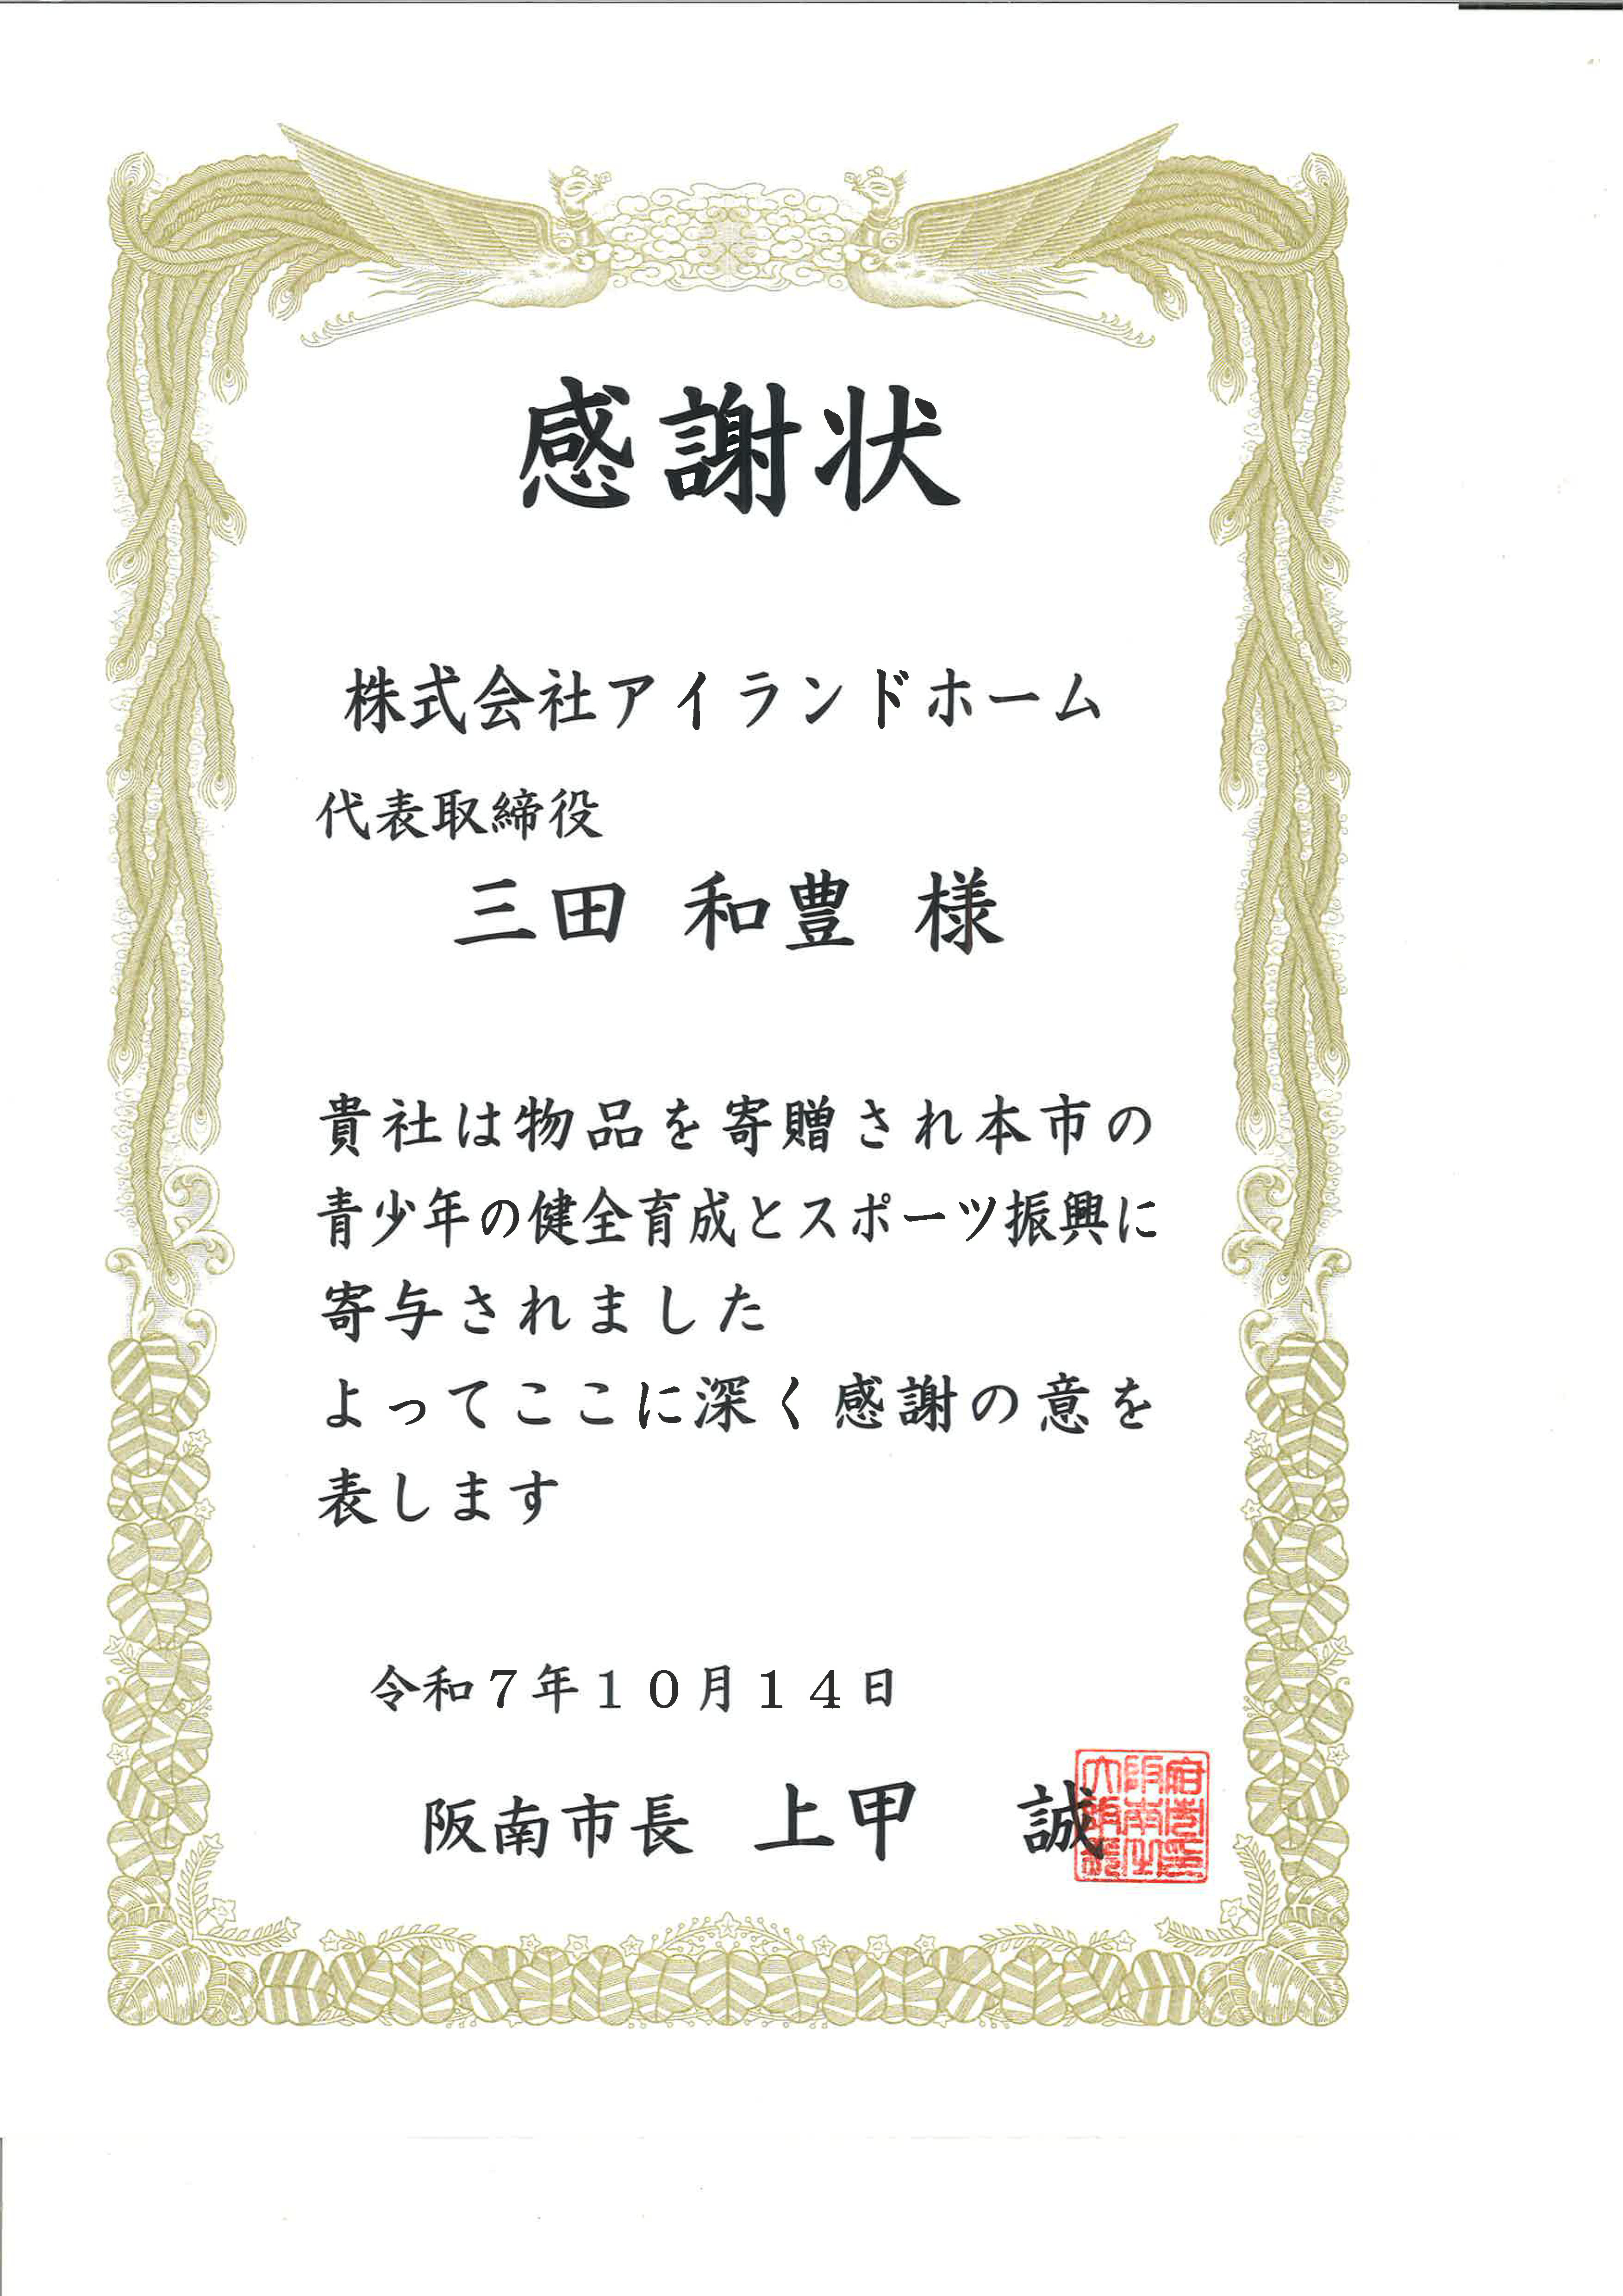 感謝状
株式会社アイランドホーム
代表取締役
三田 和豊 様
貴社は物品を寄贈され本市の
青少年の健全育成とスポーツ振興に
寄与されました
よってここに深く感謝の意を
表します
令和7年10月14日
阪南市長 上甲 誠